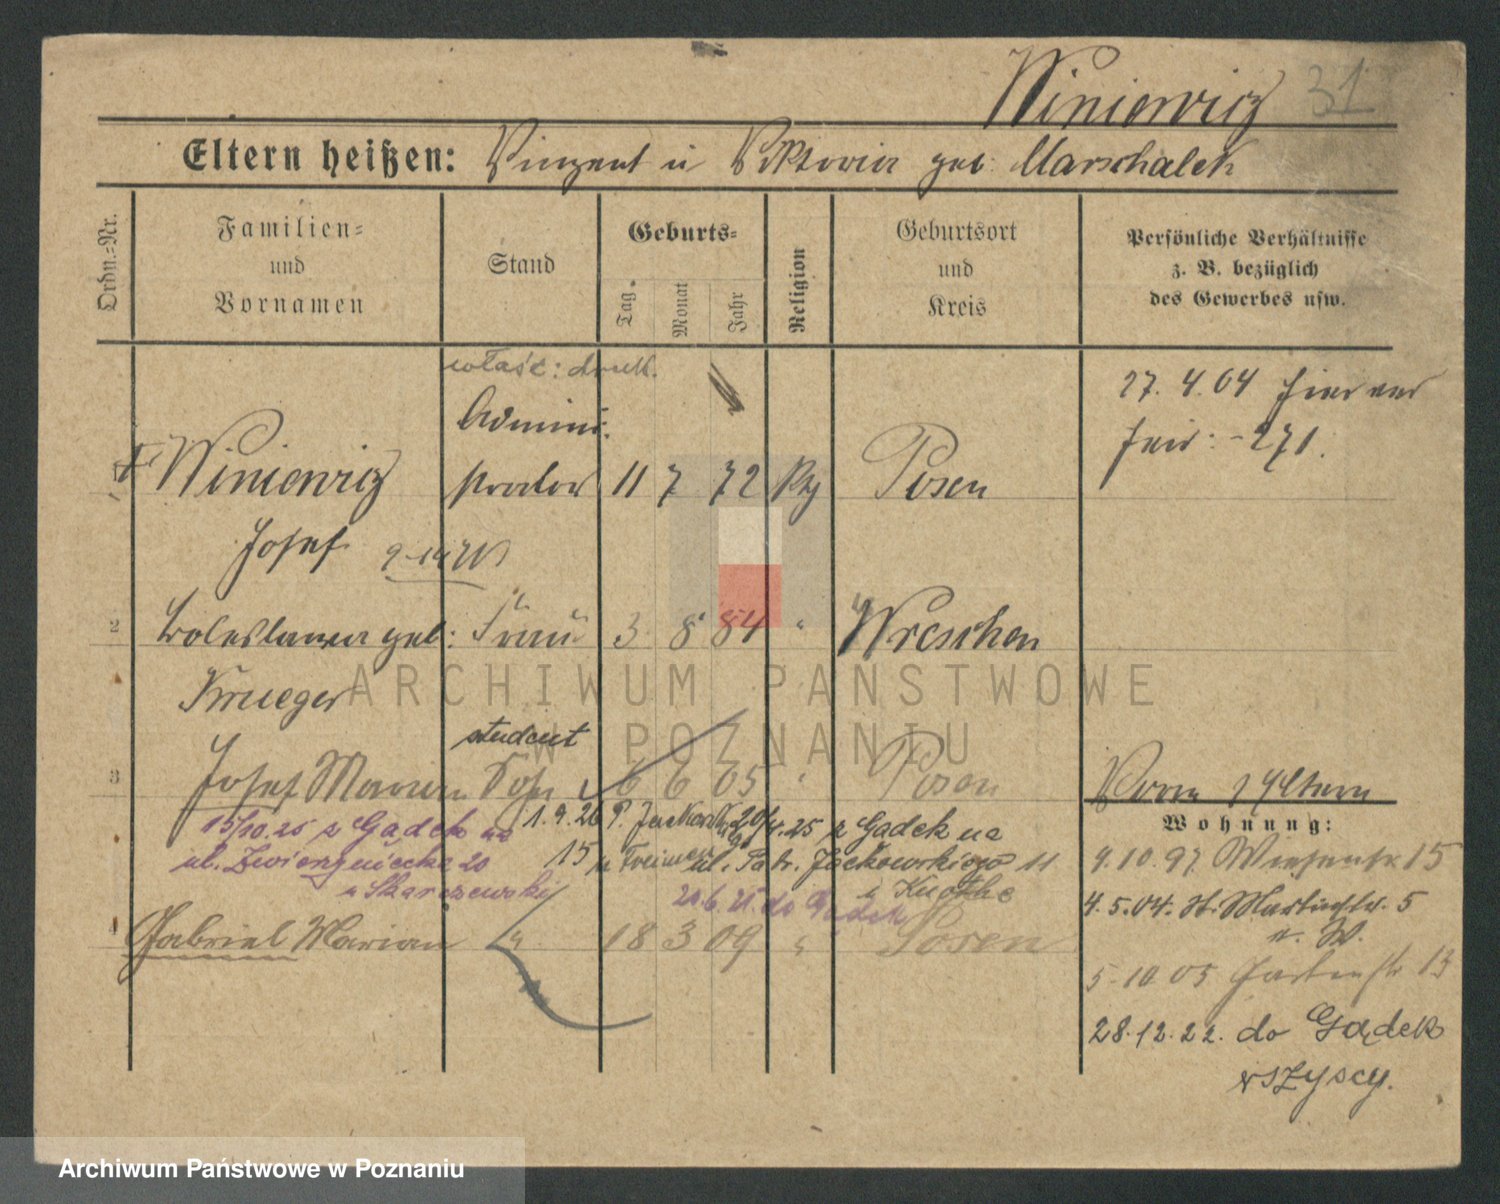 Winiewicz 31
Eltern heißen: Vinzent u Viktoria geb. Marschalek
Ordn.-Nr.
Familien- und Vornamen
Stand
Geburts-
Tag. Monat Jahr
Religion
Geburtsort und Kreis
Persönliche Verhältnisse
z. B. bezüglich
des Gewerbes usw.
właśc: druk.
27. 4. 04
Admini-
271.
Winiewicz strator 11 7 72 Posen
Josef
2 Boleslawa geb: Frau 3 8 84 " Wreschen
Krueger
student
3 Josef Marian Sohn 6 6 05 " Posen
Wohnung:
15/10.25 z Gądek na 1.9.26 P. Jackowski 20/4.25 z Gądek na
ul. Zwierzyniecka 20 15 ul. Patr. Jackowskiego 11
u Skarczewski u Knothe
20.6.25 do Gądek
4 Gabriel Marian " 18 3 09 " Posen
4.10.97 Wiesenstr 15
4.5.04. St. Martinstr. 5
b. W.
5.10.05 Gartenstr 13
28.12.22. do Gądek
wszyscy.
ARCHIWUM PAŃSTWOWE
W POZNANIU
Archiwum Państwowe w Poznaniu